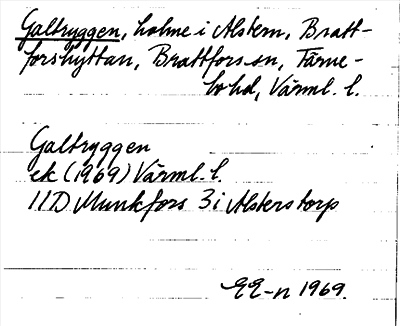 Galtryggen, holme i Alstern, Bratt-
forshyttan, Brattfors sn, Färne-
bo hd, Värml. l.
Galtryggen
ek (1969) Värml. l.
11D Munkfors 3i Alsterstorp
EE-n 1969.